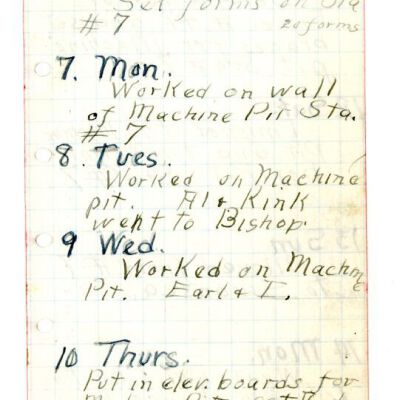 Set forms on Sta
#7 20 forms
7. Mon.
Worked on wall
of Machine Pit Sta.
#7
8. Tues.
Worked on Machine
pit. Al & Kink
went to Bishop.
9 Wed.
Worked on Machine
Pit. Earl & I.
10 Thurs.
Put in elev. boards for